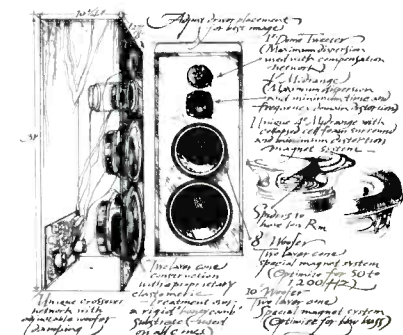 Adjust driver placement
for best image
1" Dome Tweeter
(Maximum dispersion
used with compensation
network)
Midrange
(Maximum dispersion
and minimum time and
frequency domain distortion)
Unique 4" Midrange with
collapsed cell foam surround
and minimum distortion
magnet system
Spiders to
have low Rm
8" Woofer
Two layer cone
special magnet system
(Optimize for 50 to
1200/Hz)
10" Woofer
Two layer cone
Special magnet system
(Optimize for low bass)
Two layer cone
construction
with a proprietary
elastomeric
treatment over
a rigid honeycomb
substrate (used
on all cones)
Unique crossover
network with
adjustable woofer
damping